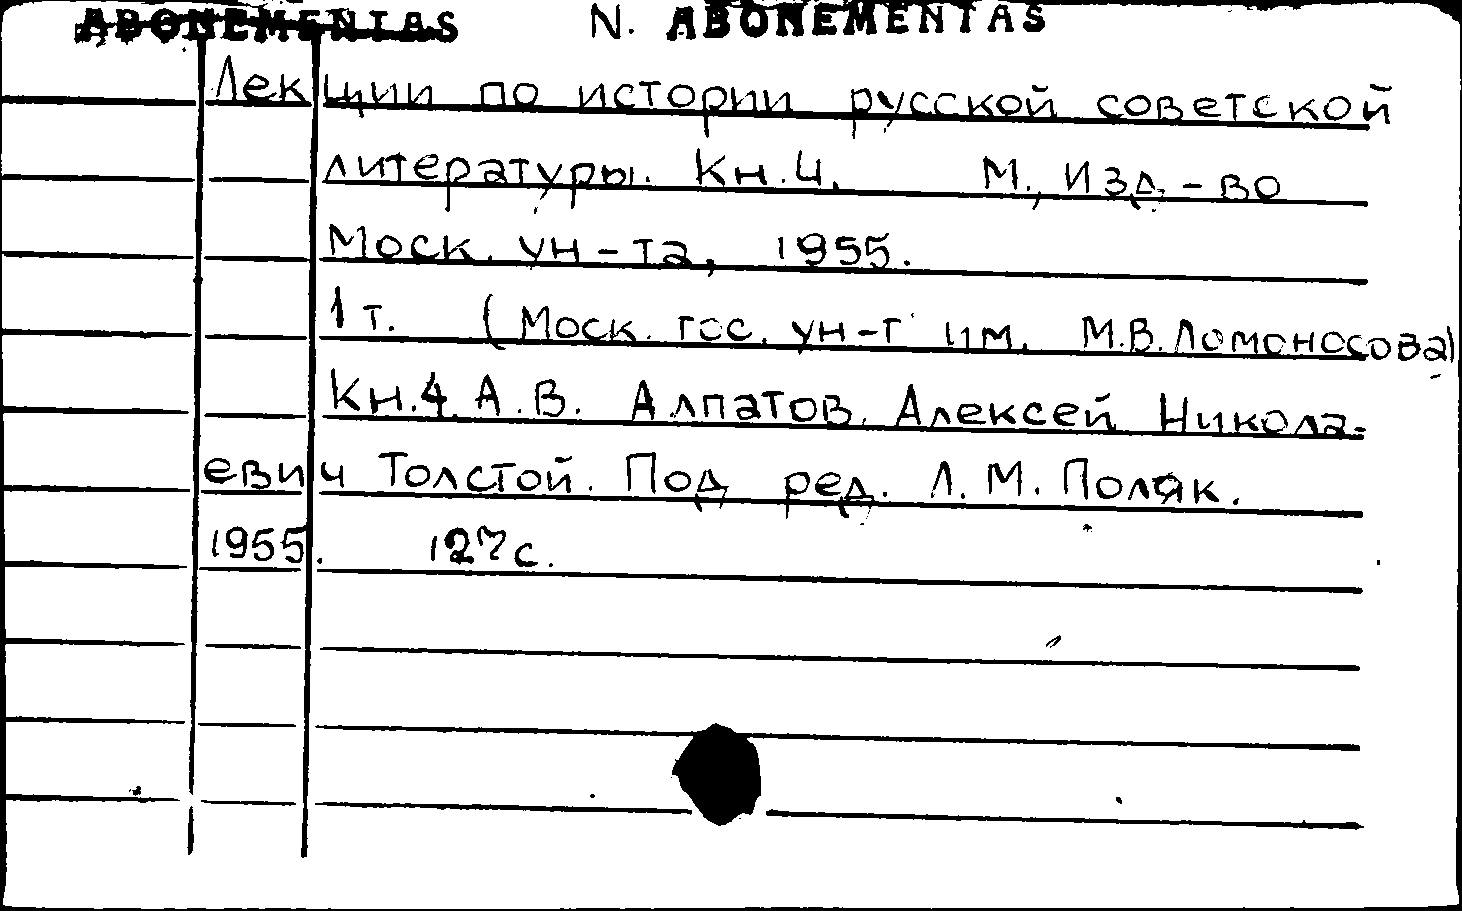 ABONEMENTAS N. ABONEMENTAS
Лекции по истории русской советской
литературы. Кн.4. М., Изд-во
Моск. ун-та, 1955.
1 т. (Моск. гос. ун-т им. М.В.Ломоносова)
Кн.4. А.В. Алпатов. Алексей Никола-
евич Толстой. Под ред. Л.М. Поляк.
1955. 127 с.